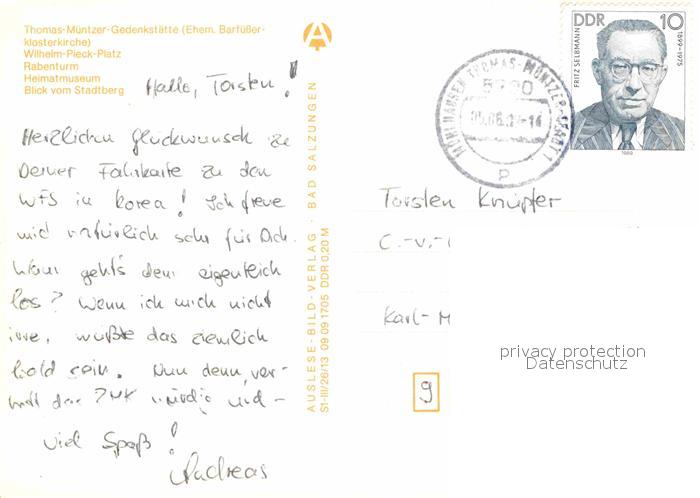 Thomas-Müntzer-Gedenkstätte (Ehem. Barfüßer-
klosterkirche)
Wilhelm-Pieck-Platz
Rabenturm
Heimatmuseum
Blick vom Stadtberg
Hallo, Torsten!
Herzlichen Glückwunsch zu
Deiner Fahrkarte zu den
WFS in Korea! Ich freue
mich natürlich sehr für Dich.
Wann geht's denn eigentlich
los? Wenn ich mich nicht
irre, müßte das ziemlich
bald sein. Nun denn, ver-
tritt die würdig und -
viel Spaß!
Andreas
AUSLESE-BILD-VERLAG · BAD SALZUNGEN
S1-III/26/13 09 09 1705 DDR 0,20 M
DDR 10
FRITZ SELBMANN 1899-1975
1989
MÜHLHAUSEN THOMAS-MÜNTZER-STADT 1
5700
p
Torsten Knüpfer
C.-v.-
Karl-M
9
privacy protection
Datenschutz